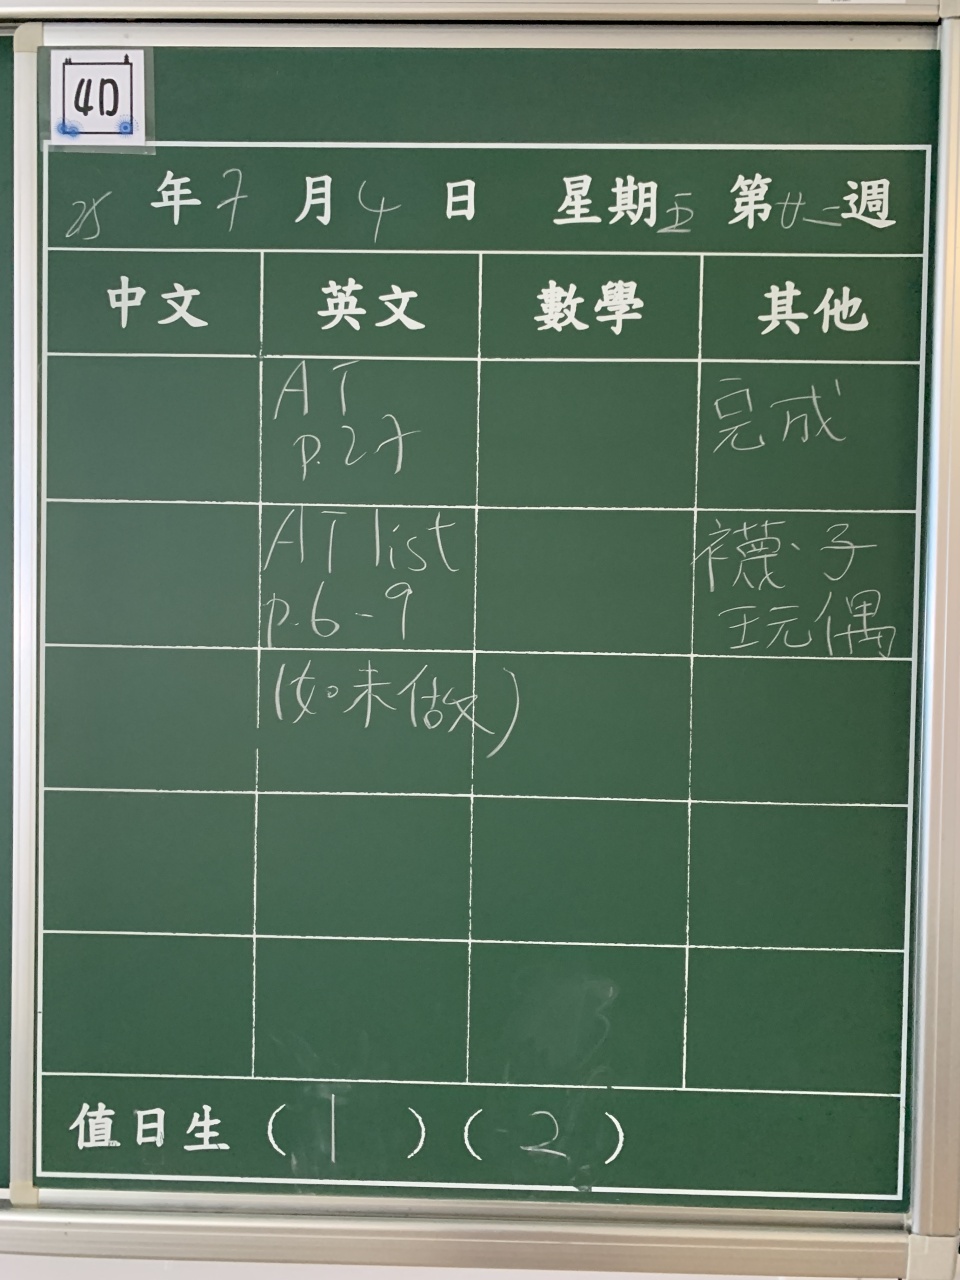 4D
25 年 7 月 4 日 星期五 第廿二週
中文 英文 數學 其他
AT
p.27
完成
AT list
p.6-9
襪子
玩偶
(如未做)
值日生 ( 1 ) ( 2 )